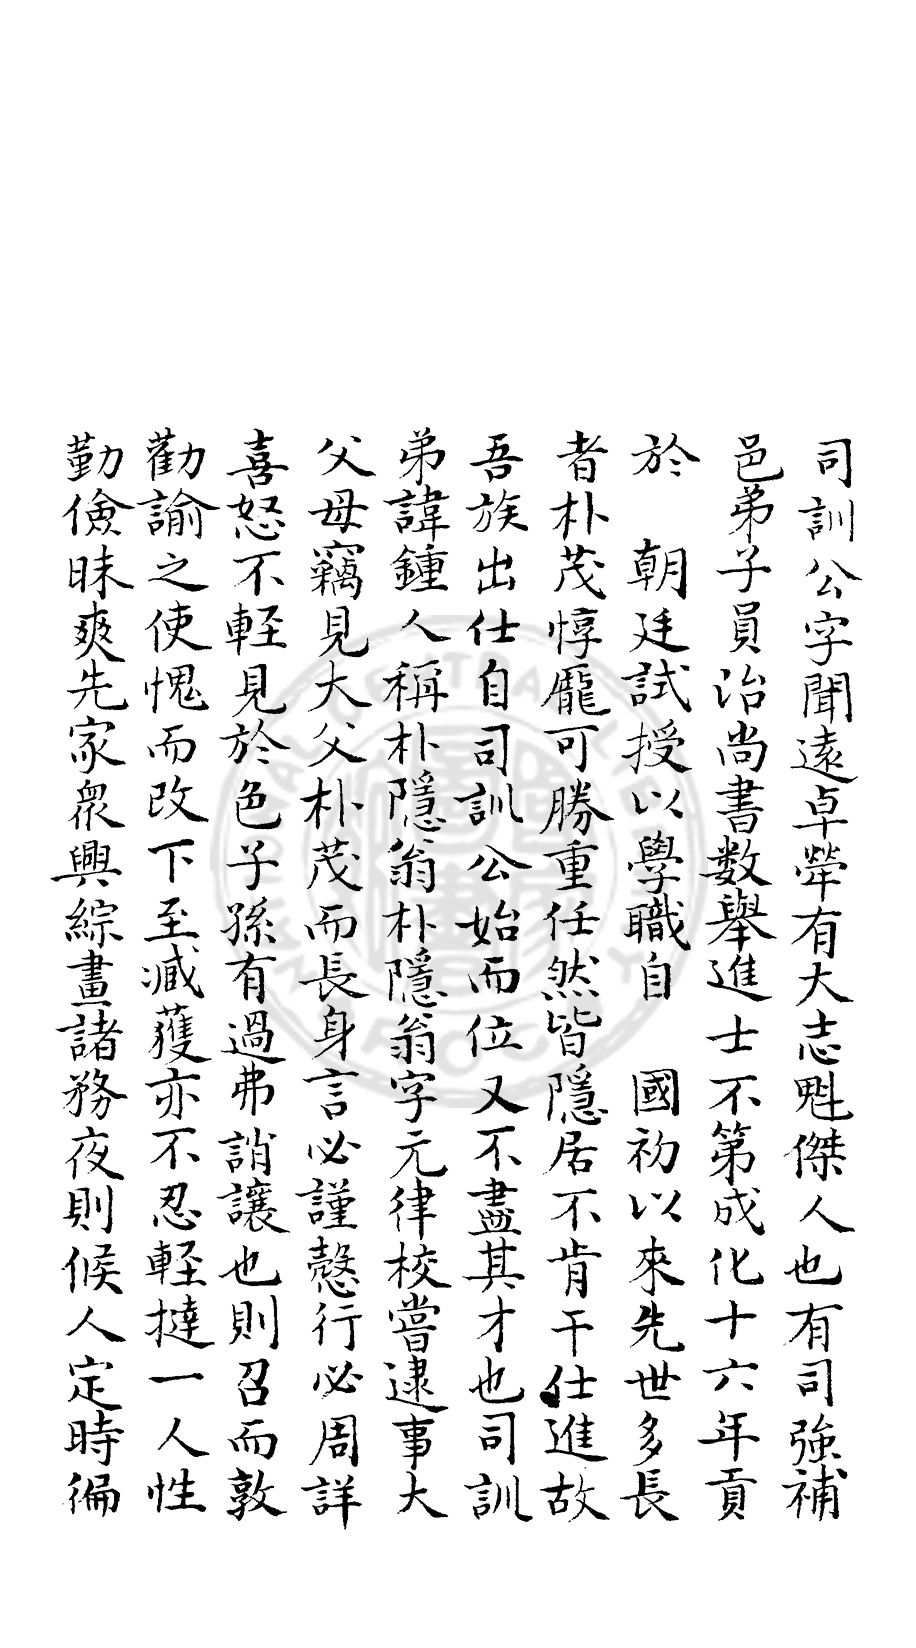 司訓公字聞遠卓犖有大志魁傑人也有司強補
邑弟子員治尚書数舉進士不第成化十六年貢
於　朝廷試授以學職自　國初以來先世多長
者朴茂惇龐可勝重任然皆隱居不肯干仕進故
吾族出仕自司訓公始而位又不盡其才也司訓
弟諱鍾人稱朴隱翁朴隱翁字元律校嘗逮事大
父母竊見大父朴茂而長身言必謹慤行必周詳
喜怒不輕見於色子孫有過弗誚讓也則召而敦
勸諭之使愧而改下至臧獲亦不忍輕撻一人性
勤儉昧爽先家衆興綜畫諸務夜則候人定時徧